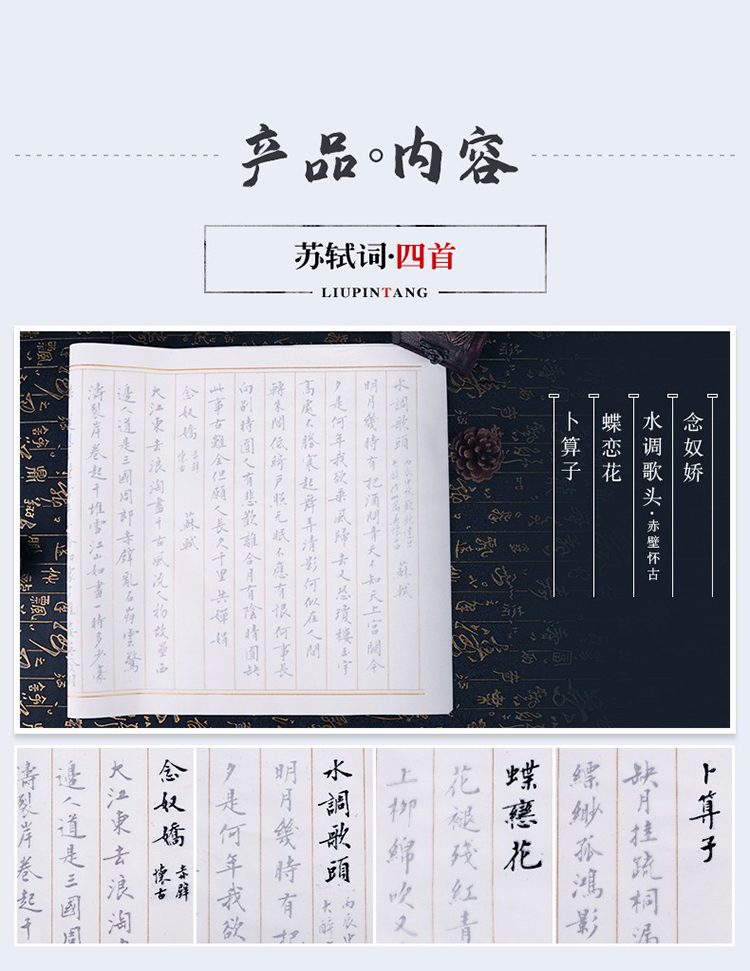 产品。内容
苏轼词·四首
LIUPINTANG
念奴娇
水调歌头·赤壁怀古
蝶恋花
卜算子
水調歌頭 蘇軾
明月幾時有把酒問青天不知天上宮闕今
夕是何年我欲乘風歸去又恐瓊樓玉宇
高處不勝寒起舞弄清影何似在人間
轉朱閣低綺戶照无眠不應有恨何事長
向別時圓人有悲歡離合月有陰晴圓缺
此事古難全但願人長久千里共嬋娟
念奴嬌 赤壁懷古 蘇軾
大江東去浪淘盡千古風流人物故壘西
邊人道是三國周郎赤壁亂石崩雲驚
濤裂岸卷起千堆雪江山如畫一時多少豪
念奴嬌 赤壁懷古
大江東去浪淘
邊人道是三國周
濤裂岸卷起千
水調歌頭 丙辰中 大醉
明月幾時有把
夕是何年我欲
蝶戀花
花褪殘紅青
上柳綿吹又
卜算子
缺月挂疏桐漏
縹緲孤鴻影